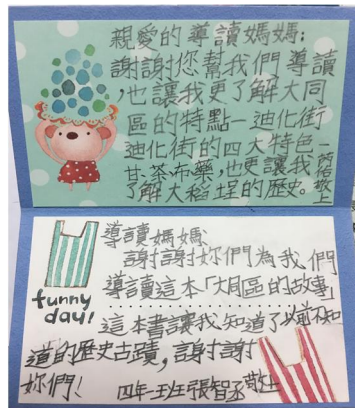 親愛的導讀媽媽:
謝謝您幫我們導讀
,也讓我更了解大同
區的特點-迪化街
迪化街的四大特色-
甘、茶、布、藥,也更讓我
了解大稻埕的歷史。
敬上
導讀媽媽:
謝謝妳們為我們
導讀這本「大同區的故事」
funny
day!
這本書讓我知道了以前不知
道的歷史古蹟,謝謝
妳們!
四年一班張智丞敬上